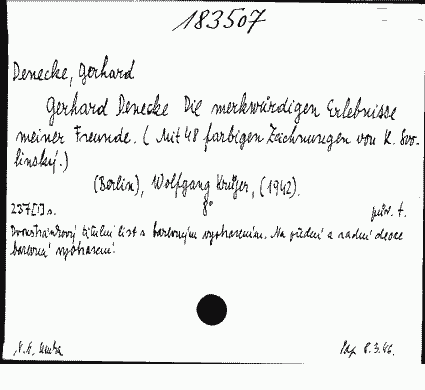 183507
Denecke, Gerhard
Gerhard Denecke Die merkwürdigen Erlebnisse
meiner Freunde. (Mit 48 farbigen Zeichnungen von K. Soo-
linský.)
(Berlin), Wolfgang Krüger, (1942).
257[1] s. 8° pův. f.
Dvoustránkový titulní list s barevným vyobrazením. Na přední a zadní desce
barevná vyobrazení.
8.3.46.